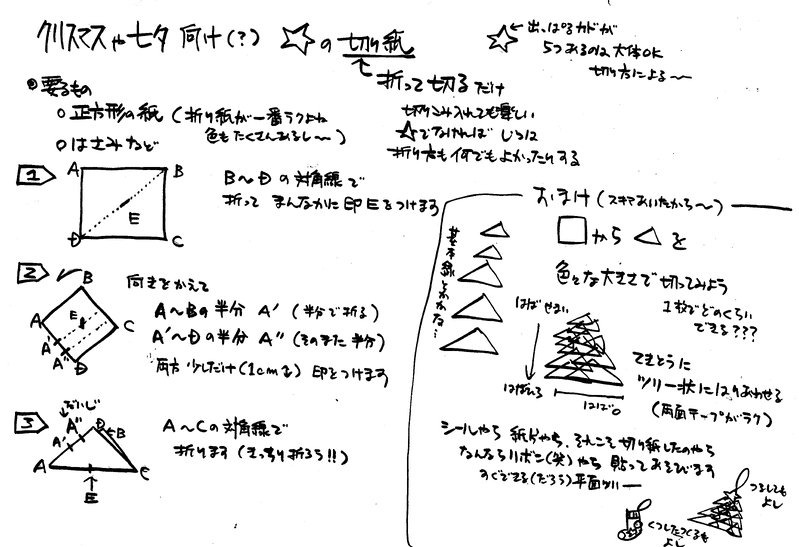 クリスマスや七夕向け(?) ☆の切り紙
☆←出っぱるカドが
5つあるのは大体OK
切り方による〜
折って切るだけ
切りこみ入れても楽しい
☆でなければじつは
折り方も何でもよかったりする
◎要るもの
○正方形の紙(折り紙が一番ラクよね
色もたくさんあるし〜)
○はさみなど
1
A
B
D
C
E
B〜Dの対角線で
折って まんなかに印Eをつけます
2
B
A
E
C
A'
A''
D
向きをかえて
A〜Bの半分 A' (半分で折る)
A'〜Dの半分 A'' (そのまた半分)
両方少しだけ(1cmを)印をつけます
3
だいじ
A''
D
B
A'
A
C
E
A〜Cの対角線で
折ります(きっちり折ろう!!)
おまけ(スキマあいたから〜)
□から△を
色々な大きさで切ってみよう
1枚でどのくらい
できる???
基本線とかかな…
はばせまい
はばひろ
はば0
てきとうに
ツリー状にはりあわせる
(両面テープがラク)
シールやら 紙片やら、それこそ切り紙したのやら
なんならリボン(笑)やら 貼ってあそびます
すぐできる(だろう)平面ツリー
つるしても
よし
くつしたつくるも
よし